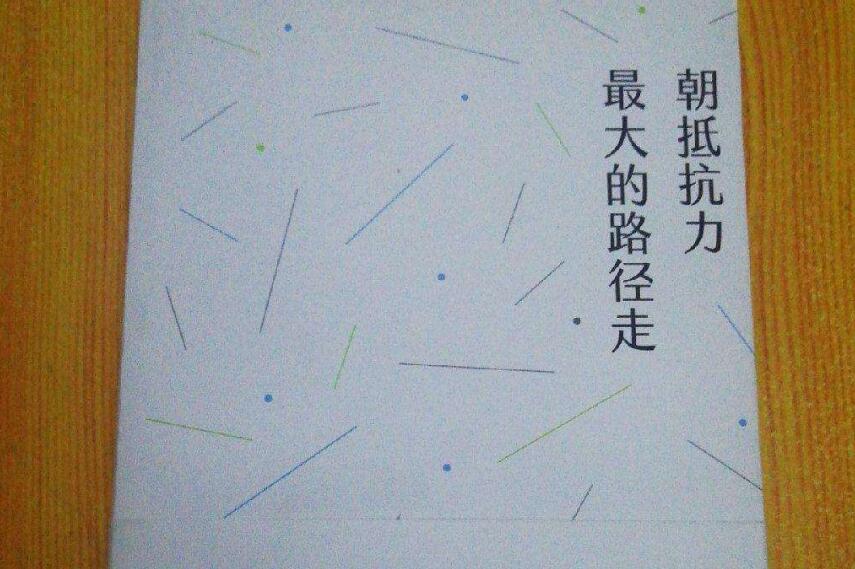 朝抵抗力
最大的路径走